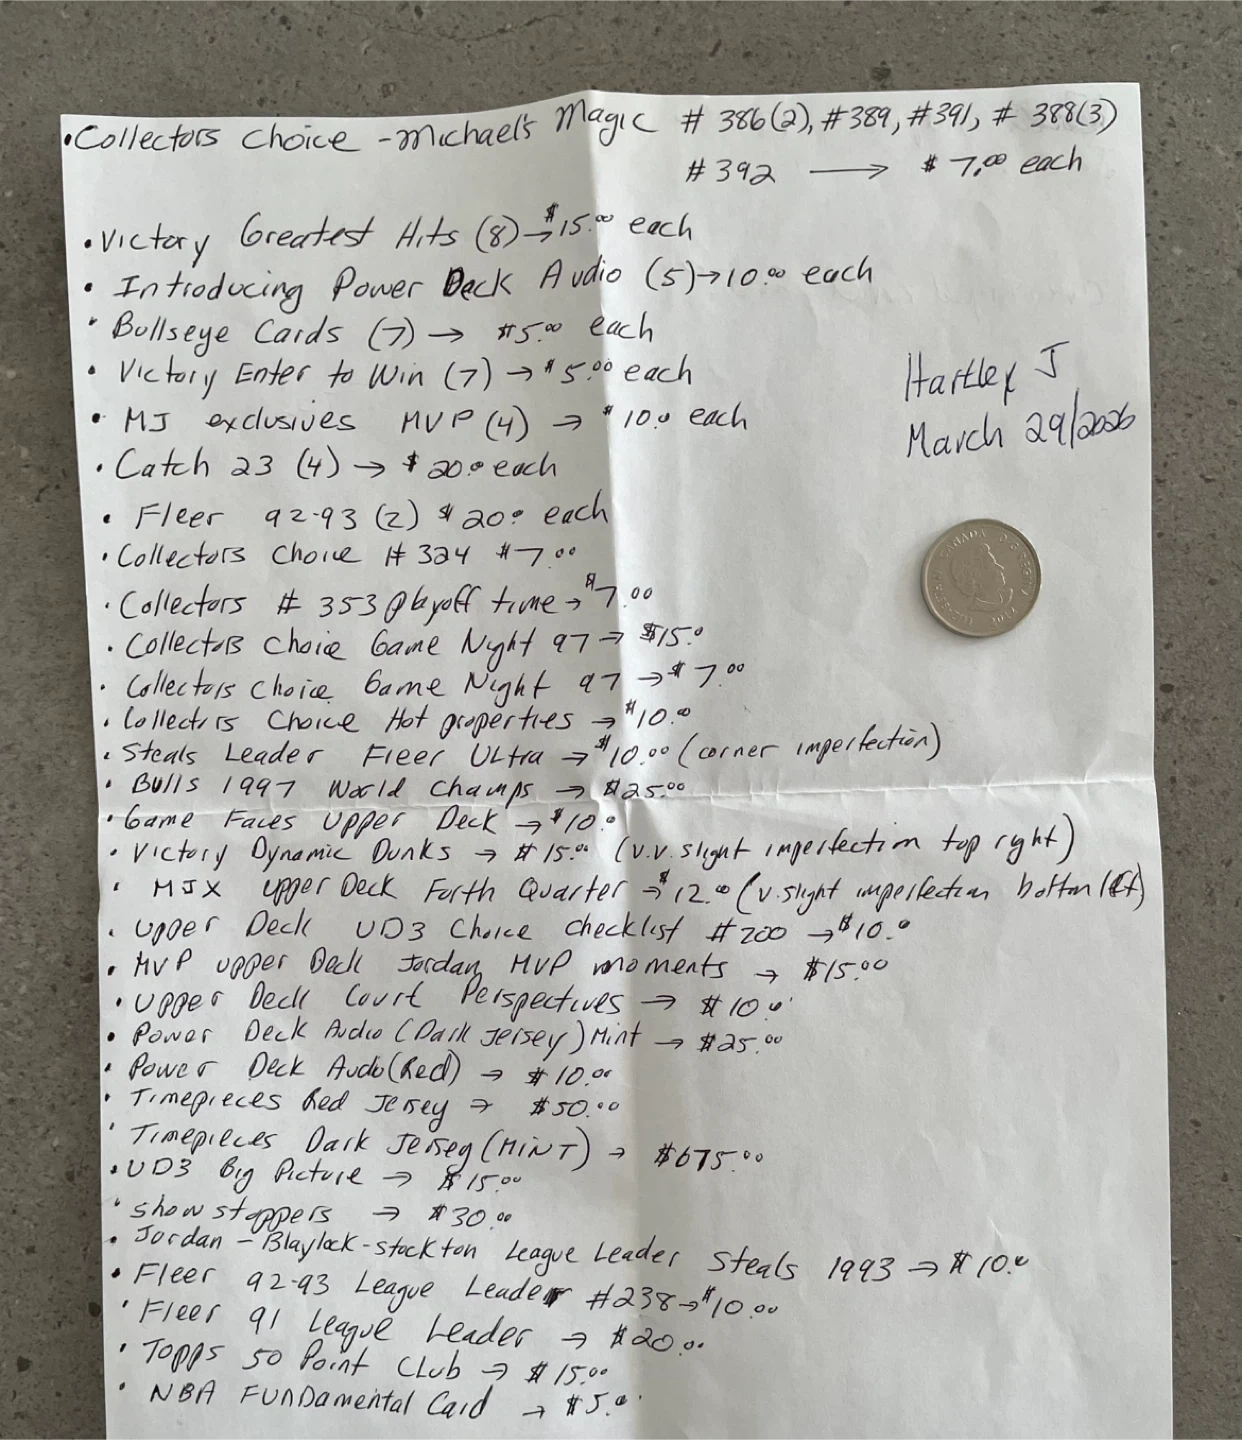 • Collectors Choice - Michael's Magic # 386(2), #389, #391, # 388(3)
# 392 → $7.00 each
• Victory Greatest Hits (8) → $15.00 each
• Introducing Power Deck Audio (5) → 10.00 each
• Bullseye Cards (7) → $5.00 each
• Victory Enter to Win (7) → $5.00 each
• MJ exclusives MVP (4) → $10.0 each
• Catch 23 (4) → $20.0 each
• Fleer 92-93 (2) $20.0 each
• Collectors Choice # 324 $7.00
• Collectors # 353 playoff time → $7.00
• Collectors Choice Game Night 97 → $15.0
• Collectors Choice Game Night 97 → $7.00
• Collectors Choice Hot properties → $10.00
• Steals Leader Fleer Ultra → $10.00 (corner imperfection)
• Bulls 1997 World Champs → $25.00
• Game Faces Upper Deck → $10.0
• Victory Dynamic Dunks → $15.00 (v.v. slight imperfection top right)
• MJX Upper Deck Forth Quarter → $12.00 (v. slight imperfection bottom left)
• Upper Deck UD3 Choice Checklist #200 → $10.0
• MVP upper Deck Jordan MVP moments → $15.00
• Upper Deck Court Perspectives → $10.0
• Power Deck Audio (Dark Jersey) Mint → $25.00
• Power Deck Audo (Red) → $10.00
• Timepieces Red Jersey → $50.00
• Timepieces Dark Jersey (MINT) → $675.00
• UD3 Big Picture → $15.00
• show stoppers → $30.00
• Jordan - Blaylock - stockton League Leader Steals 1993 → $10.0
• Fleer 92-93 League Leader #238 → $10.00
• Fleer 91 League Leader → $20.00
• Topps 50 Point Club → $15.00
• NBA FUNDamental Card → $5.0
Hartley J
March 29/2026
CANADA